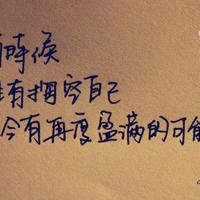 時候
有掏空自己
会有再度盈满的可能